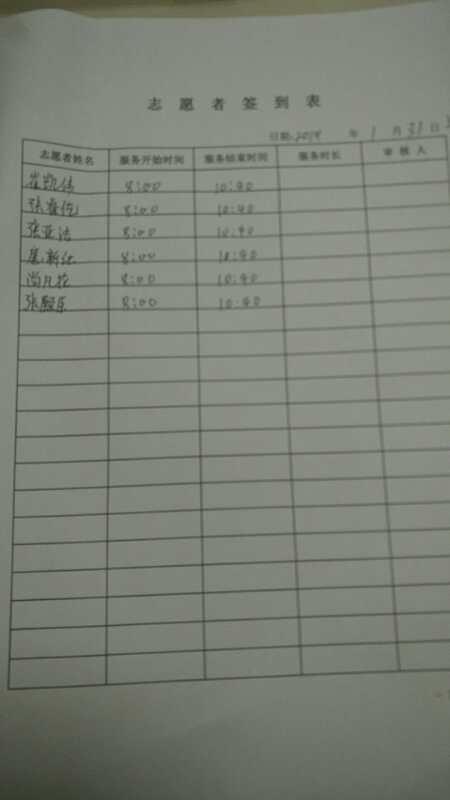 志愿者签到表
日期:2019 年 1 月 31 日
志愿者姓名 服务开始时间 服务结束时间 服务时长 审核人
崔凯伟 8:00 10:40
8:00 10:40
张亚洁 8:00 10:40
8:00 10:40
尚凡花 8:00 10:40
8:00 10:40